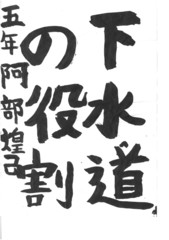 下水道
の役割
五年 阿部煌己